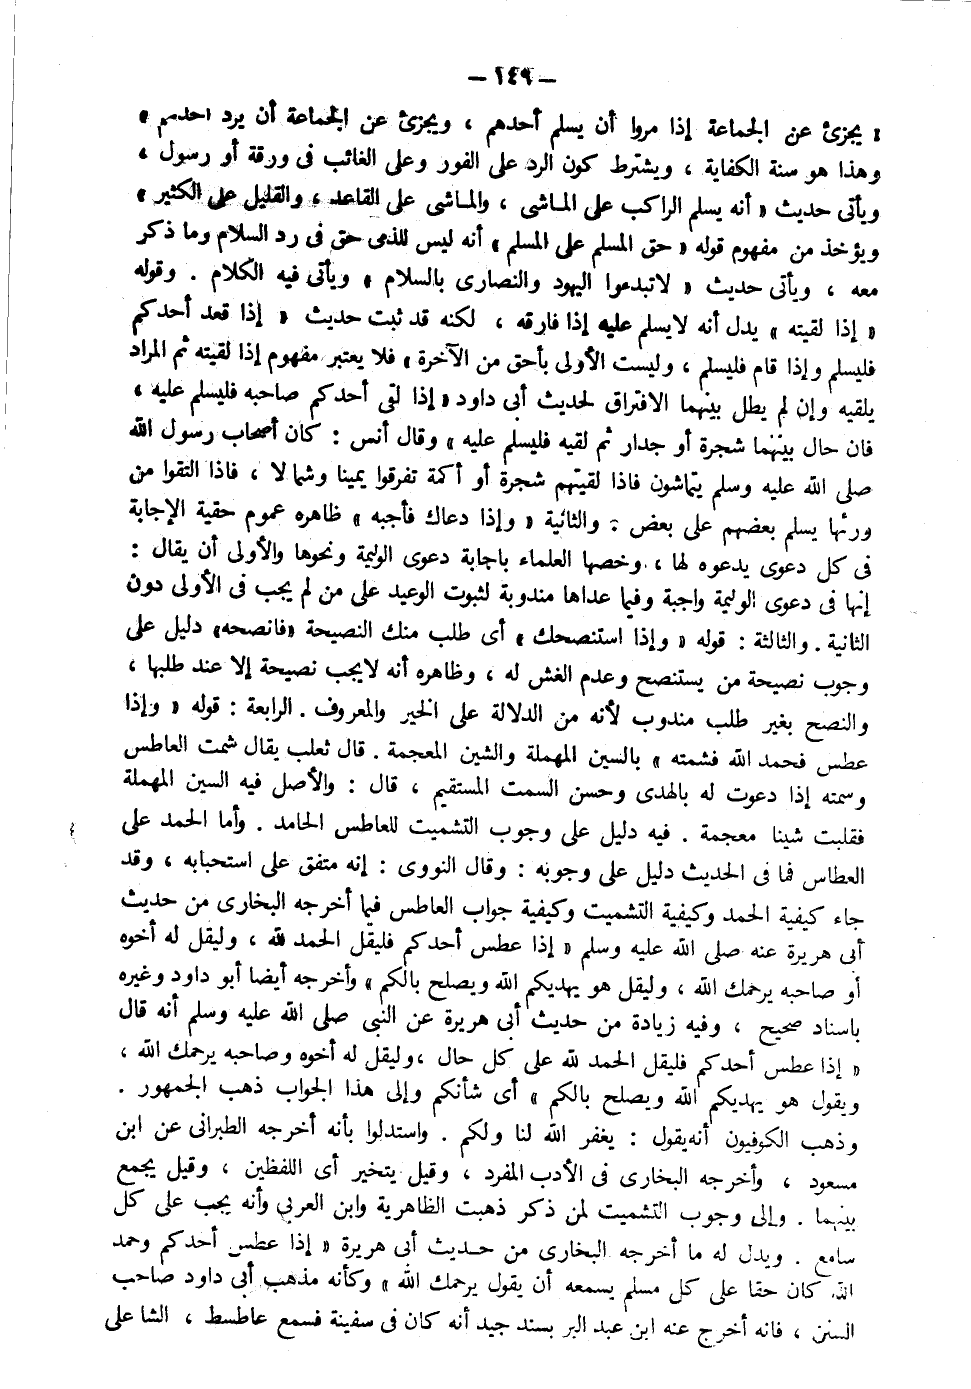 — ١٤٩ —
« يجزئ عن الجماعة إذا مروا أن يسلم أحدهم ، ويجزئ عن الجماعة أن يرد أحدهم »
وهذا هو سنة الكفاية ، ويشترط كون الرد على الفور وعلى الغائب فى ورقة أو رسول ،
ويأتى حديث « أنه يسلم الراكب على الماشى ، والماشى على القاعد ، والقليل على الكثير »
ويؤخذ من مفهوم قوله « حق المسلم على المسلم » أنه ليس للذمى حق فى رد السلام وما ذكر
معه ، ويأتى حديث « لاتبدءوا اليهود والنصارى بالسلام » ويأتى فيه الكلام . وقوله
« إذا لقيته » يدل أنه لايسلم عليه إذا فارقه ، لكنه قد ثبت حديث « إذا قعد أحدكم
فليسلم وإذا قام فليسلم ، وليست الأولى بأحق من الآخرة » فلا يعتبر مفهوم إذا لقيته ثم المراد
يلقيه وإن لم يطل بينهما الافتراق لحديث أبى داود « إذا لقى أحدكم صاحبه فليسلم عليه ،
فان حال بينهما شجرة أو جدار ثم لقيه فليسلم عليه » وقال أنس : كان أصحاب رسول الله
صلى الله عليه وسلم يتماشون فاذا لقيتهم شجرة أو أكمة تفرقوا يمينا وشمالا ، فاذا التقوا من
ورائها يسلم بعضهم على بعض : والثانية « وإذا دعاك فأجبه » ظاهره عموم حقية الإجابة
فى كل دعوى يدعوه لها ، وخصها العلماء باجابة دعوى الوليمة ونحوها والأولى أن يقال :
إنها فى دعوى الوليمة واجبة وفيما عداها مندوبة لثبوت الوعيد على من لم يجب فى الأولى دون
الثانية . والثالثة : قوله « وإذا استنصحك » أى طلب منك النصيحة «فانصحه» دليل على
وجوب نصيحة من يستنصح وعدم الغش له ، وظاهره أنه لايجب نصيحة إلا عند طلبها ،
والنصح بغير طلب مندوب لأنه من الدلالة على الخير والمعروف . الرابعة : قوله « وإذا
عطس فحمد الله فشمته » بالسين المهملة والشين المعجمة . قال ثعلب يقال شمت العاطس
وسمته إذا دعوت له بالهدى وحسن السمت المستقيم ، قال : والأصل فيه السين المهملة
فقلبت شينا معجمة . فيه دليل على وجوب التشميت للعاطس الحامد . وأما الحمد على
العطاس فما فى الحديث دليل على وجوبه : وقال النووى : إنه متفق على استحبابه ، وقد
جاء كيفية الحمد وكيفية التشميت وكيفية جواب العاطس فيما أخرجه البخارى من حديث
أبى هريرة عنه صلى الله عليه وسلم « إذا عطس أحدكم فليقل الحمد لله ، وليقل له أخوه
أو صاحبه يرحمك الله ، وليقل هو يهديكم الله ويصلح بالكم » وأخرجه أيضا أبو داود وغيره
باسناد صحيح ، وفيه زيادة من حديث أبى هريرة عن النبى صلى الله عليه وسلم أنه قال
« إذا عطس أحدكم فليقل الحمد لله على كل حال ،وليقل له أخوه وصاحبه يرحمك الله ،
ويقول هو يهديكم الله ويصلح بالكم » أى شأنكم وإلى هذا الجواب ذهب الجمهور .
وذهب الكوفيون أنه يقول : يغفر الله لنا ولكم . واستدلوا بأنه أخرجه الطبرانى عن ابن
مسعود ، وأخرجه البخارى فى الأدب المفرد ، وقيل يتخير أى اللفظين ، وقيل يجمع
بينهما . وإلى وجوب التشميت لمن ذكر ذهبت الظاهرية وابن العربى وأنه يجب على كل
سامع . ويدل له ما أخرجه البخارى من حديث أبى هريرة « إذا عطس أحدكم وحمد
الله كان حقا على كل مسلم يسمعه أن يقول يرحمك الله » وكأنه مذهب أبى داود صاحب
السنن ، فانه أخرج عنه ابن عبد البر بسند جيد أنه كان فى سفينة فسمع عاطسط ، الشا على